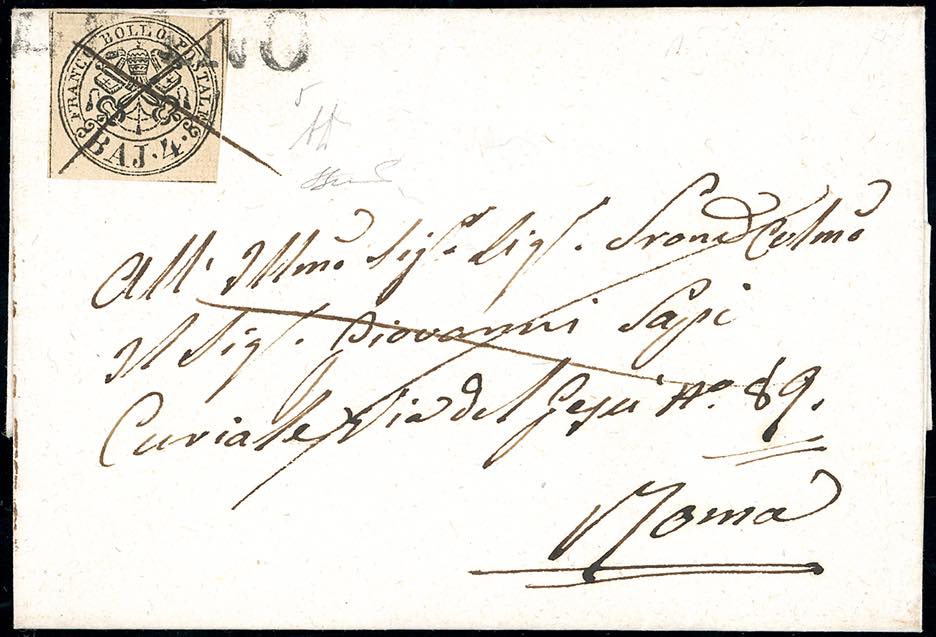 FRANCO BOLLO POSTALE
BAJ. 4.
All' Illmo Sigr. Sigr. Prone Colmo
Il Sigr. Giovanni
Curiale Via del Gesù No. 89.
Roma